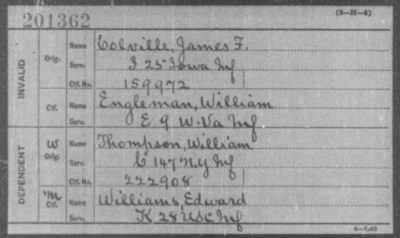 201362
(3-H-4)
INVALID
Orig.
Name Colville, James F.
Serv. I 25 Iowa Inf
Ctf. No. 159972
Ctf.
Name Engleman, William
Serv. E 9 W. Va Inf
DEPENDENT
W
Orig.
Name Thompson, William
Serv. C 147 N.Y. Inf
Ctf. No. 222908
M
Ctf.
Name Williams, Edward
Serv. K 28 USC Inf